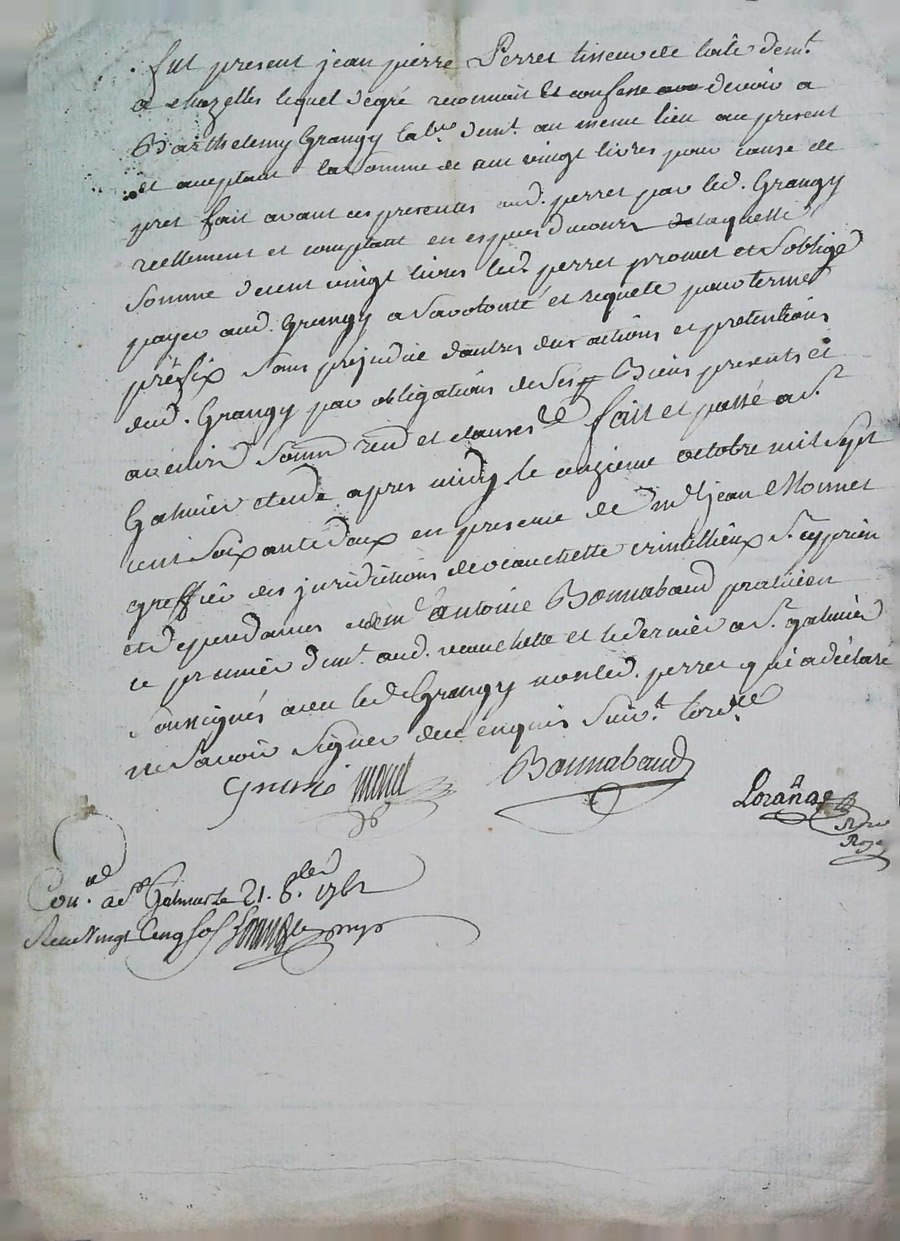 fut present jean pierre Perret tisseur de toile dem.t
a chazelles lequel de gré reconnait et confesse devoir a
Barthelemy Grangy lab.r dem.t au meme lieu au present
et aceptant la somme de cent vingt livres pour cause de
pret fait avant ces presentes aud. perret par led. Grangy
reellement et comptant en especes de cours de laquelle
somme de cent vingt livres led. perret promet et soblige
payer aud. Grangy a sa volonté et requete pour terme
préfix sans prejudice dautres dus actions et pretentions
dud. Grangy par obligations de ses Biens presents et
avenir soum. ren. et clauses &c. fait et passé a S.t
Galmier etude apres midy le onzieme octobre mil sept
cent soixante deux en presence de m.e jean Monnet
greffier des juridictions de veauchette S.t cyprien
et dependances et de m.e antoine Bonnabaud praticien
le premier dem.t aud. veauchette et le dernier a S.t galmier
soussignés avec led. Grangy non led. perret qui a déclaré
ne savoir signer de ce enquis suiv.t lord.ce
monet Bonnabaud
Loran
Con.lé a S.t Galmier le 21. 8.bre 1762
Recu vingt cinq sols